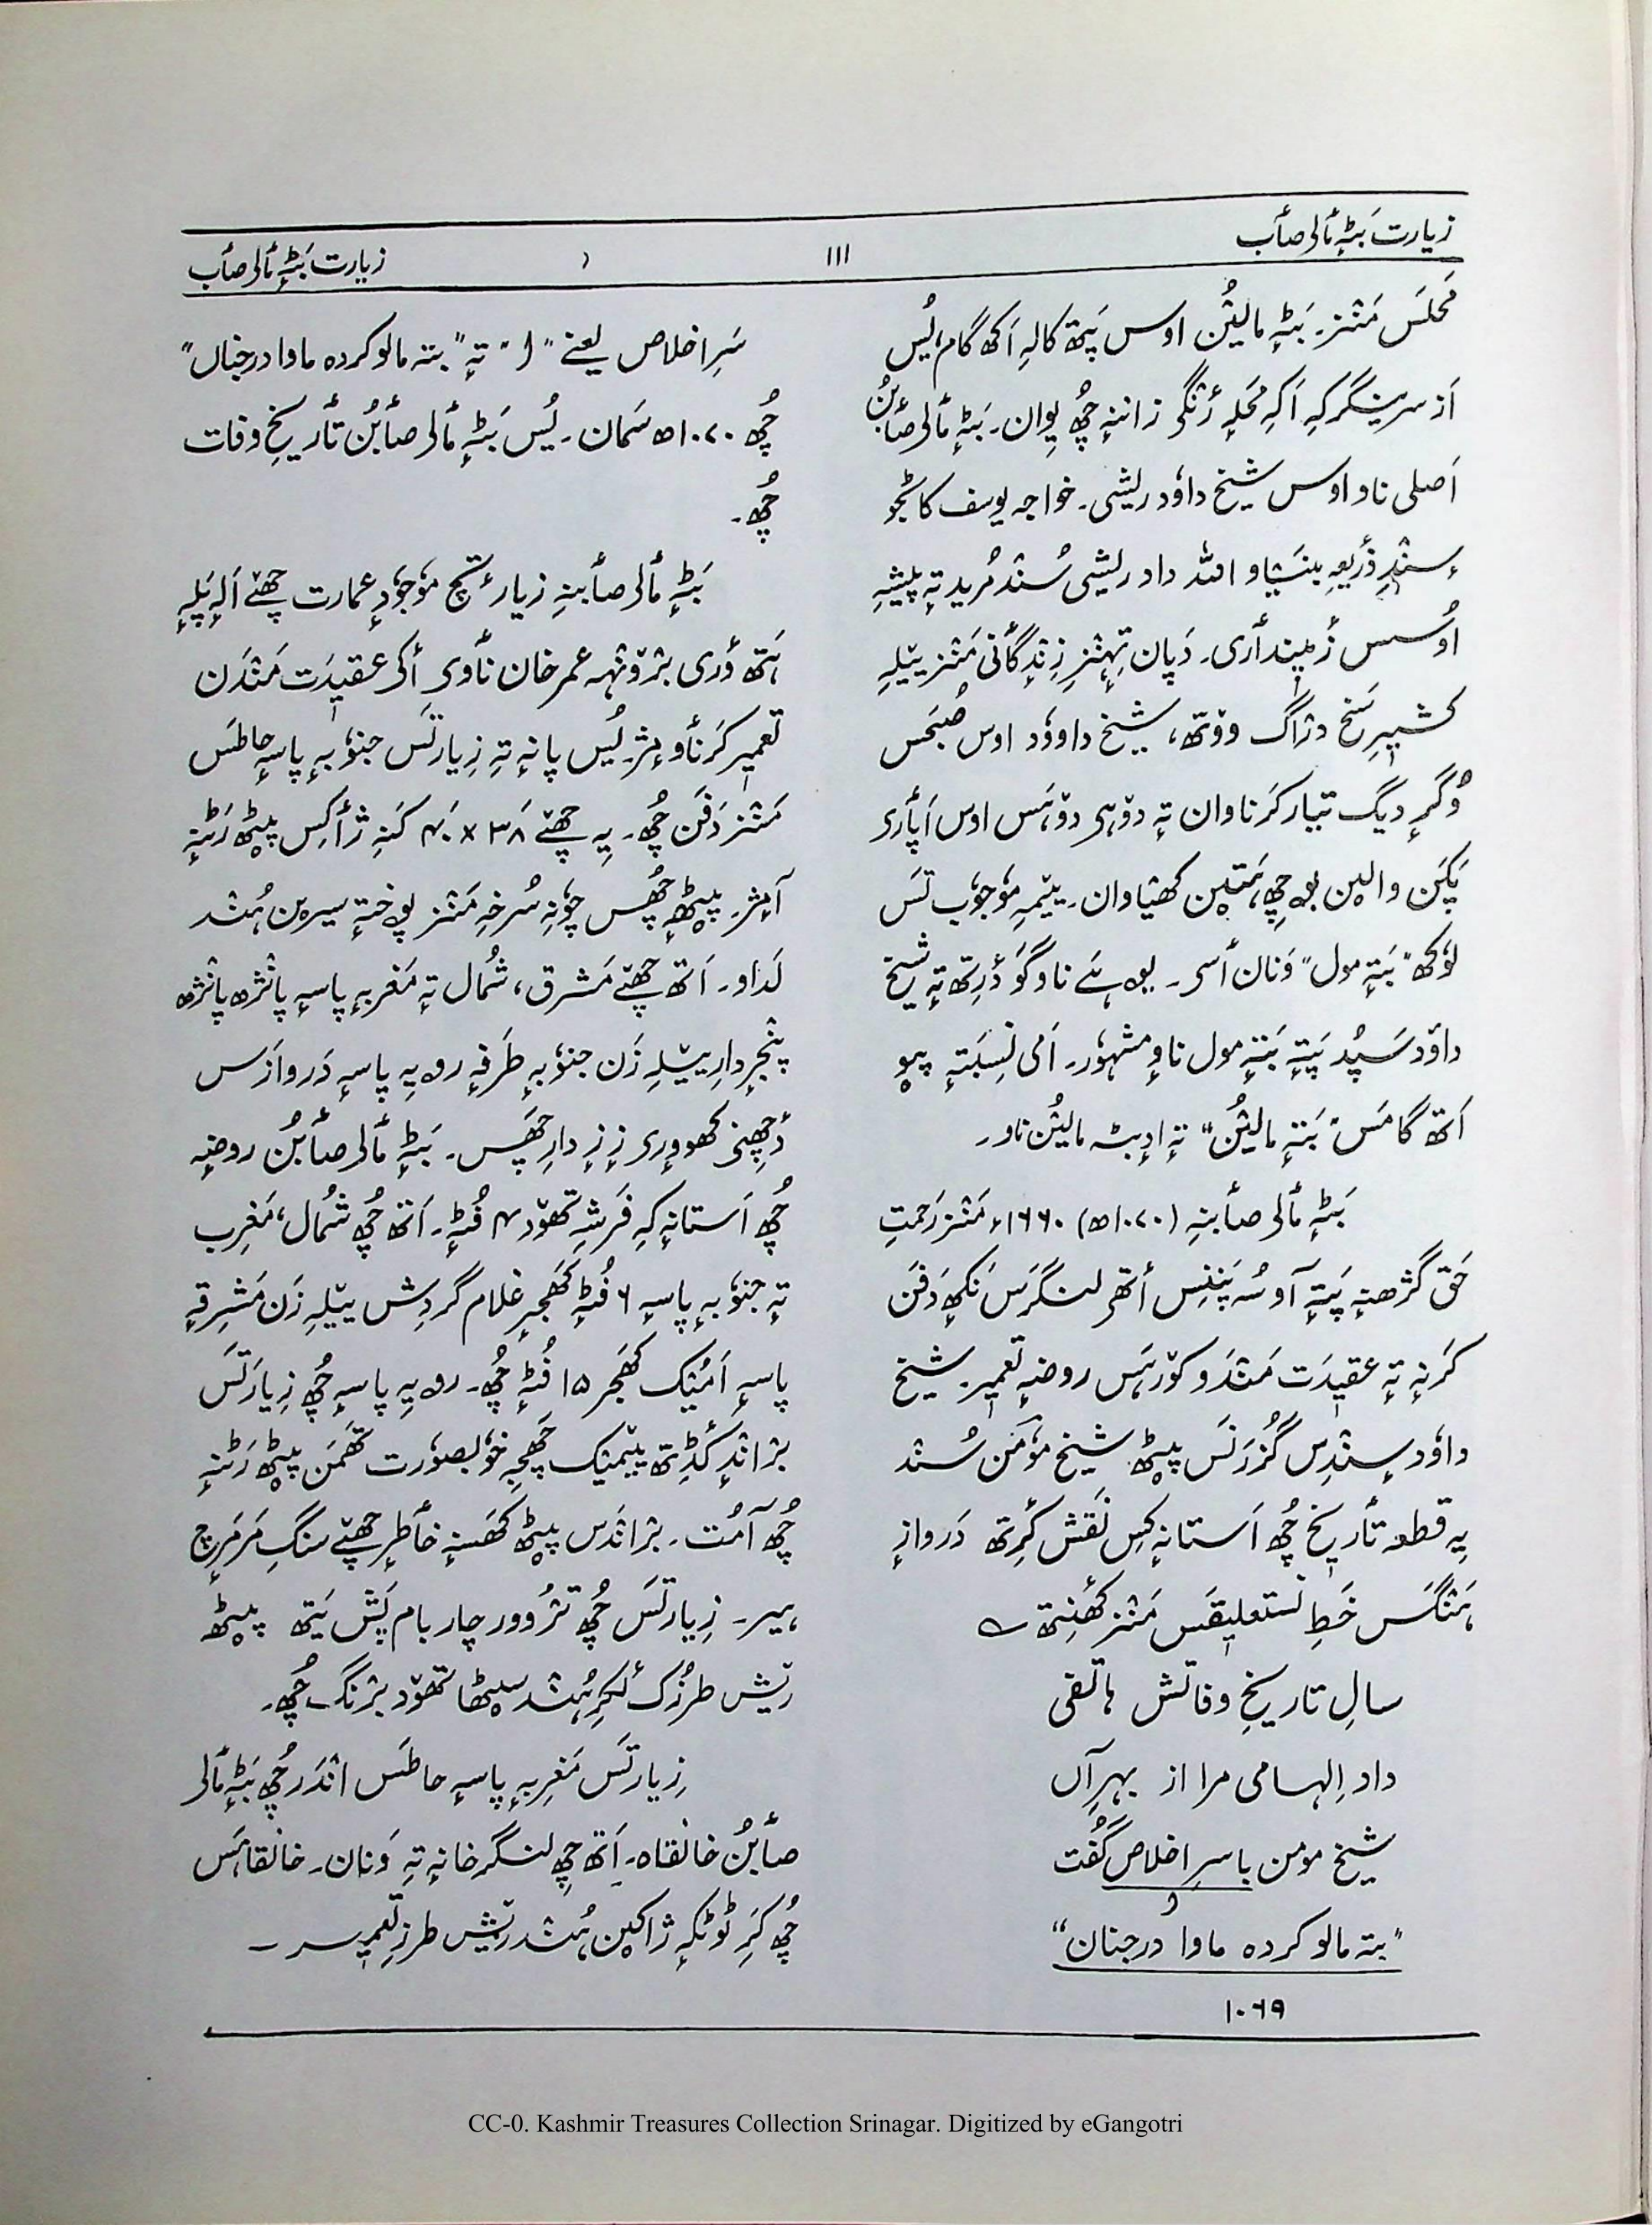 زیارت بَٹہٕ مٲلۍ صٲب
۱۱۱
زیارت بَٹہٕ مٲلۍ صٲب
مَحلَس مَنٛز۔ بَٹہٕ مالیُٛن اوس پَتھ کالہِ اَکھ گام، یُس
اَز سرینگرکہِ اَکہِ مَحلہٕ رَنٛگۍ زاننہٕ چُھ یِوان۔ بَٹہٕ مٲلۍ صٲبُن
اَصلی ناو اوس شیخ داوٗد ریشی۔ خواجہ یوسف کاٹجو
سٕنٛدِ ذَریعہِ بنیٛاو اللہ داد ریشی سُنٛد مُرید تہٕ پیشہٕ
اوٗسس زٔمینداری۔ دَپان تِہنٛزِ زِنٛدگٲنی مَنٛز ییٚلہِ
کٔشیٖرِ سَخ دراگ ووٚتھ، شیخ داووٗد اوس صُبحَس
وُگرٕ دیگ تیار کَرناوان تہٕ دۄہۍ دۄہَس اوس اَپٲرۍ
پَکَن والیٚن بۄچھِ ہَتیٚن کھیٛاوان۔ ییٚمہِ موٗجوٗب تَس
لوٗکھ "بَتہٕ مول" وَنان ٲسۍ۔ یۄہَے ناو گوٚو دٔرِتھ تہٕ شیخ
داوٗد سَپُد پَتہٕ بَتہٕ مول ناوٕ مشہوٗر۔ اَمی نِسبَتہٕ پیوٚو
اَتھ گامَس "بَتہٕ مالیُٛن" تہٕ اِدٕ بٹہ مالیُٛن ناو۔
بَٹہٕ مٲلۍ صٲبنہِ (۱۰۷۰ھ) ۱۶۶۰ء مَنٛز رَحمتِ
حَق گژھنہٕ پَتہٕ آو سُہ پَننِس اَتھۍ لنگرَس نَکھہٕ دَفَن
کَرنہٕ تہٕ عقیدَت مَنٛدَو کوٚرہَس روضہٕ تعمیٖر۔ شیخ
داوٗد سٕنٛدِس گُزرَنَس پیٚٹھ شیخ موٗمَن سُنٛد
یہِ قطعہ تٲریٖخ چُھ اَستانہٕ کِس نَقش کٔرِتھ دَروازٕ
ہَنٛگَس خَطِ نستعلیٖقَس مَنٛز کھٔنِتھ ؎
سالِ تاریخِ وفاتش ہاتفی
داد اِلہامی مرا از بہرِ آں
شیخ مومن باسرِ اخلاص گُفت
و
"بتہ مالو کردہ ماوا درجنان"
۱۰۶۹
سَرِ اخلاص یعنے "ا" تہٕ "بتہ مالو کردہ ماوا درجناں"
چُھ ۱۰۷۰ھ سَمان۔ یُس بَٹہٕ مٲلۍ صٲبُن تٲریخِ وفات
چُھ۔
بَٹہٕ مٲلۍ صٲبنہِ زیارٔژ موٗجوٗدٕ عمارت چھےٚ اَلہٕ پَلہٕ
ہَتھ وٕری برٛونٛہہ عمرخان ناوٕی اَکی عقیٖدَت مَنٛدَن
تعمیٖر کَرناومٕژ۔ یُس پانہٕ تہِ زِیارتَس جنوٗبہٕ پاسہٕ حاطَس
مَنٛز دَفَن چُھ۔ یہِ چھےٚ ۳۸ × ۴۰ کَنہِ ژٲکِس پیٚٹھ رَٹنہٕ
آمٕژ۔ پیٚٹھہٕ چُھس چوٗنہٕ سُرخہٕ مَنٛز پۄختہٕ سیرٮ۪ن ہُنٛد
لَداو۔ اَتھ چھےٚ مَشرق، شُمال تہٕ مَغربہٕ پاسہٕ پانٛژھ پانٛژھ
پنٛجرِدارِ ییٚلہِ زَن جنوٗبہٕ طَرفہٕ روبہٕ پاسہٕ دَروازَس
دٔچھِنۍ کھووٕرۍ زٕ زٕ دارِ چھَس۔ بَٹہٕ مٲلۍ صٲبُن روضہٕ
چُھ اَستانہٕ کہِ فَرشہٕ تھوٚد ۴ فُٹہٕ۔ اَتھ چُھ شُمال، مَغرِب
تہٕ جنوٗبہٕ پاسہٕ ۶ فُٹہٕ کھجرِ غلام گردِش ییٚلہِ زَن مَشرِقہٕ
پاسہٕ اَمیُک کھَجر ۱۵ فُٹہٕ چُھ۔ روبہٕ پاسہٕ چُھ زِیارَتَس
برانٛدٕ کٔڈِتھ ییٚمیُک پَچھہِ خوٗبصوٗرت تھَمَن پیٚٹھ رَٹنہٕ
چُھ آمُت۔ برانٛدَس پیٚٹھ کھَسنہٕ خٲطرٕ چھےٚ سنگِ مَرمَرٕچ
ہیر۔ زِیارتَس چُھ ترُٛووور چار بام پَش یَتھ پیٚٹھ
ریٚش طرزُک لٔکرِ ہُنٛد سیٹھا تھوٚد برنٛگ چُھ۔
زِیارتَس مَغرِبہٕ پاسہٕ حاطَس انٛدَر چُھ بَٹہٕ مٲلۍ
صٲبُن خانقاہ۔ اَتھ چھِ لنگرخانہٕ تہِ وَنان۔ خانقاہَس
چُھ کَرِ ٹوٗنٛکہٕ ژاکیٚن ہُنٛد ریٚش طرزِ تعمیٖر۔
CC-0. Kashmir Treasures Collection Srinagar. Digitized by eGangotri